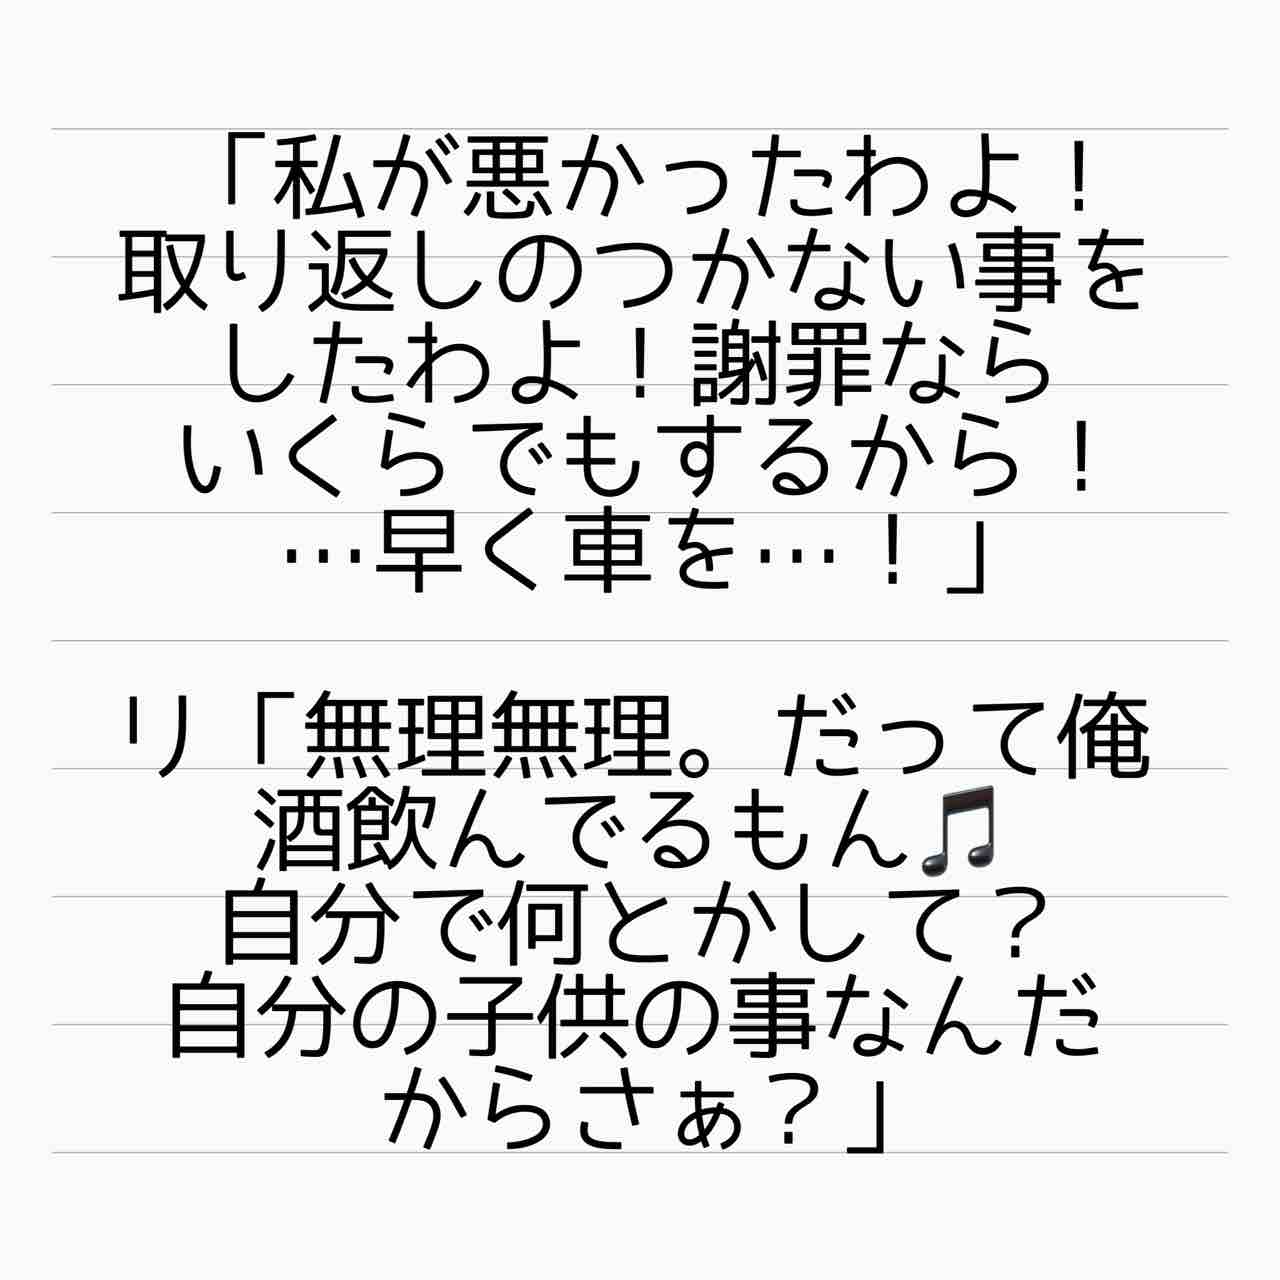 「私が悪かったわよ！
取り返しのつかない事を
したわよ！謝罪なら
いくらでもするから！
…早く車を…！」
リ「無理無理。だって俺
酒飲んでるもん🎵
自分で何とかして？
自分の子供の事なんだ
からさぁ？」